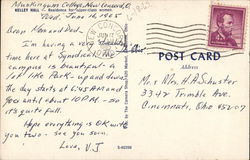 Muskingum College, New Concord, O.
KELLEY HALL — Residence for upper-class women
Wed. June 16, 1965
Dear Mom and Dad,
I'm having a very
time here at Syndicate. The
campus is beautiful - a
lot like Park - up and down
the day starts at 6:45 A.M. and
you until about 10 P.M. - so
it's quite full.
Hope everything is OK with
you two - see you soon.
Love, V.J.
S-62258
POST CARD
Address
Mr. & Mrs. H. A. Shuster
3342 Trimble Ave.
Cincinnati, Ohio 45207
NEW CONCORD
JUN 17